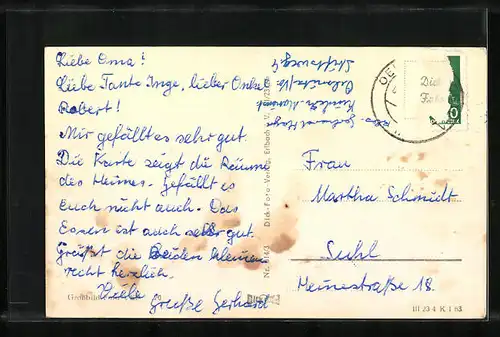 Liebe Oma!
Liebe Tante Inge, lieber Onkel
Robert!
Mir gefällt es sehr gut.
Die Karte zeigt die Räume
des Heimes. Gefällt es
Euch nicht auch. Das
Essen ist auch sehr gut.
Grüßt die Beiden kleinen
recht herzlich.
Viele
Grüße Gerhard
Gerhard
Stiftsweg 4
Dick-Foto-Verlag, Erlbach i. V.
Nr.
Dick
Foto
Frau
Martha Schmidt
Suhl
Meinestraße 18.
III 23 4 K 1 63